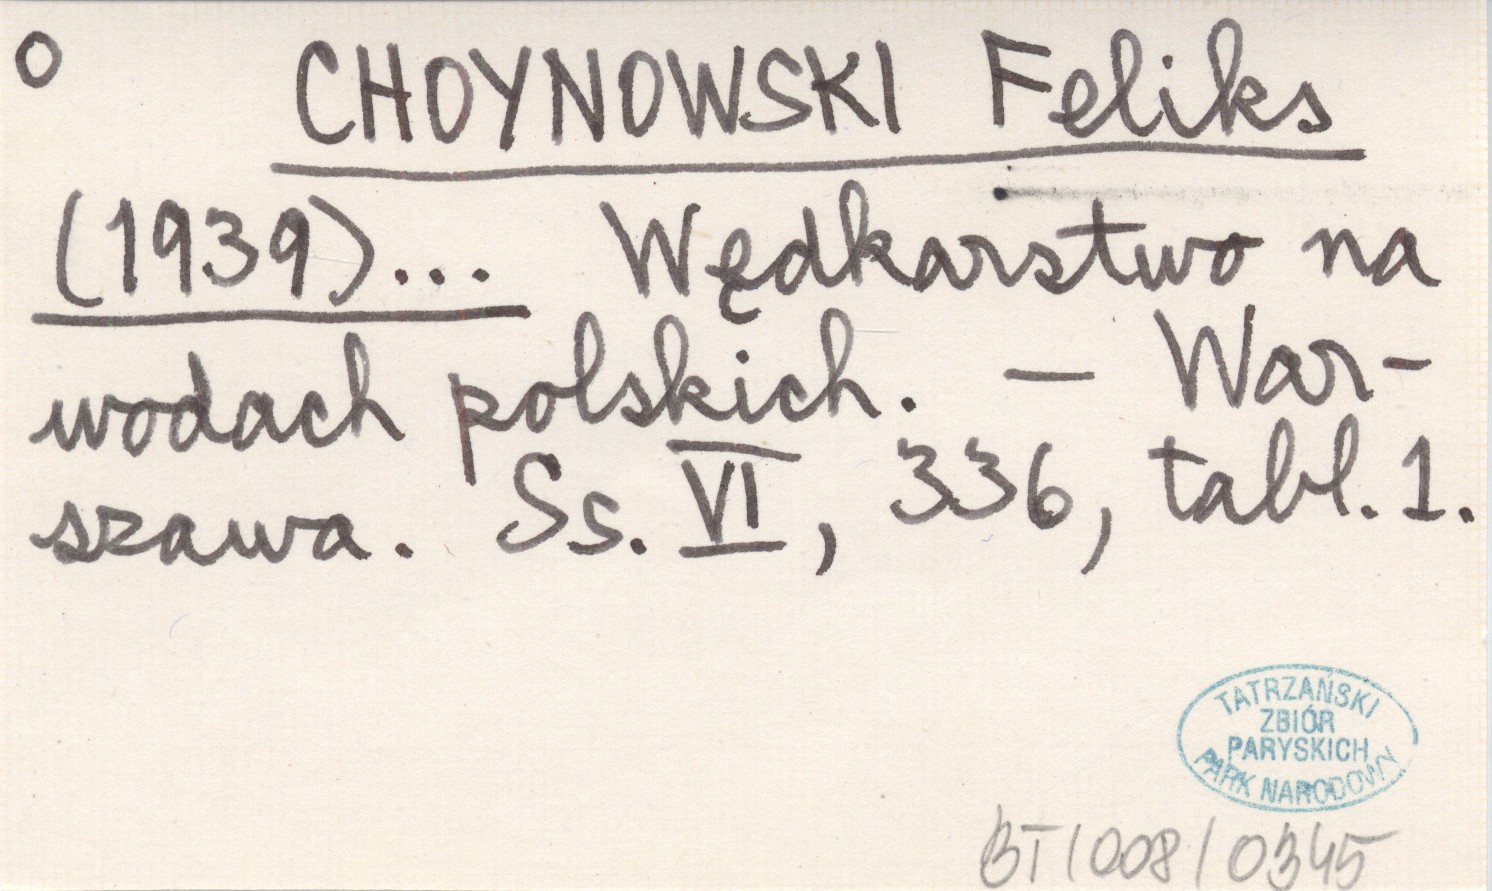 O CHOYNOWSKI Feliks
(1939)... Wędkarstwo na
wodach polskich. — War-
szawa. Ss. VI, 336, tabl. 1.
TATRZAŃSKI
ZBIÓR
PARYSKICH
PARK NARODOWY
BT/008/0345